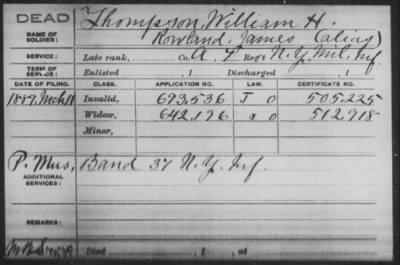 DEAD Thompson, William H.
NAME OF SOLDIER: Rowland, James (alias)
SERVICE: Late rank, Co. A. 7 Reg't N.Y. Mil. Inf
TERM OF SERVICE: Enlisted , 1 Discharged , 1
DATE OF FILING. CLASS. APPLICATION NO. LAW. CERTIFICATE NO.
1889, Mch Invalid, 693,536 J O 505,225
Widow, 642,196 O 512,918
Minor,
P. Mus, Band 37 N.Y. Inf.
ADDITIONAL SERVICES:
REMARKS:
Died , 1 , at